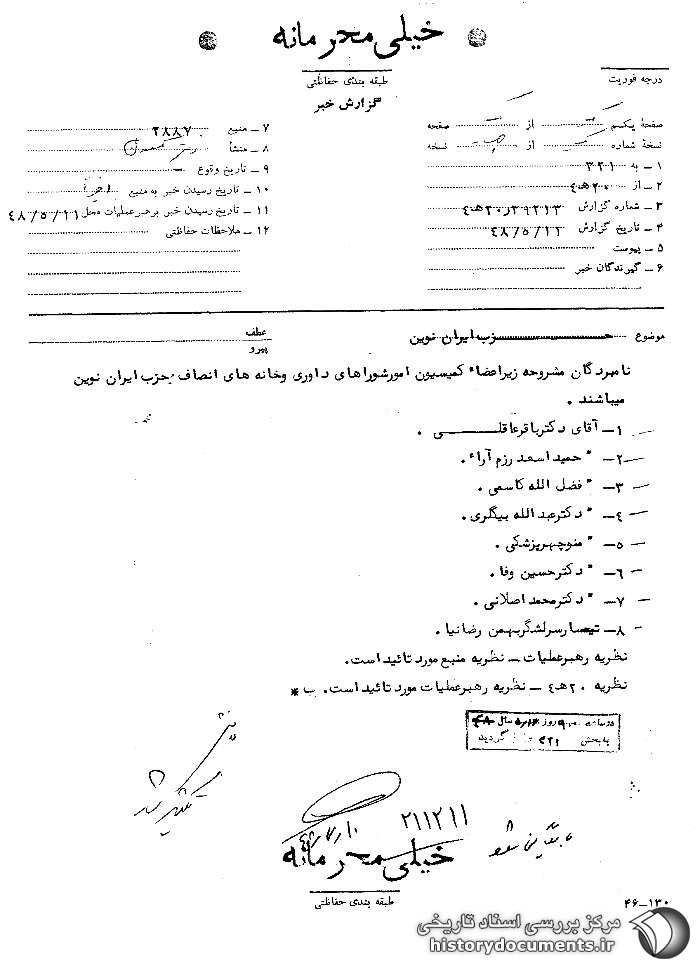 خیلی محرمانه
طبقه بندی حفاظتی
درجه فوریت
گزارش خبر
صفحهٔ یکم از صفحه
نسخهٔ شماره از نسخه
۱ـ به ۳۲۱
۲ـ از ۲۰هـ٤
۳ـ شماره گزارش ۲۰٫۳۹۲۱۳هـ٤
۴ـ تاریخ گزارش ٤٨/٥/۱۲
۵ـ پیوست
۶ـ گیرندگان خبر
۷ـ منبع ۲۸۸۷
۸ـ منشأ
۹ـ تاریخ وقوع ـ
۱۰ـ تاریخ رسیدن خبر به منبع اخیرا
۱۱ـ تاریخ رسیدن خبر برهبر عملیات محل ٤٨/٥/۱۱
۱۲ـ ملاحظات حفاظتی
موضوع حزب ایران نوین
عطف
پیرو
نامبردگان مشروحه زیراعضاء کمیسیون امورشوراهای داوری وخانه های انصاف حزب ایران نوین
میباشند .
۱ـ آقای دکترباقرعاقلی .
۲ـ " حمید اسعد رزم آراء .
۳ـ " فضل الله کاسمی .
٤ـ " دکترعبدالله بیگلری .
٥ـ " منوچهرپزشکی .
٦ـ " دکترحسین وفا .
۷ـ " دکترمحمد اصلانی .
۸ـ تیمسارسرلشگربهمن رضانیا .
نظریه رهبرعملیات ـ نظریه منبع مورد تائید است.
نظریه ۲۰هـ٤ ـ نظریه رهبرعملیات مورد تائید است. ب*
در ساعت ۹ روز سال ٤٨
به بخش ۳۲۱ گردید
۲۱۱۲۱۱
خیلی محرمانه
طبقه بندی حفاظتی
۴۶ـ۱۳۰
مرکز بررسی اسناد تاریخی
historydocuments.ir